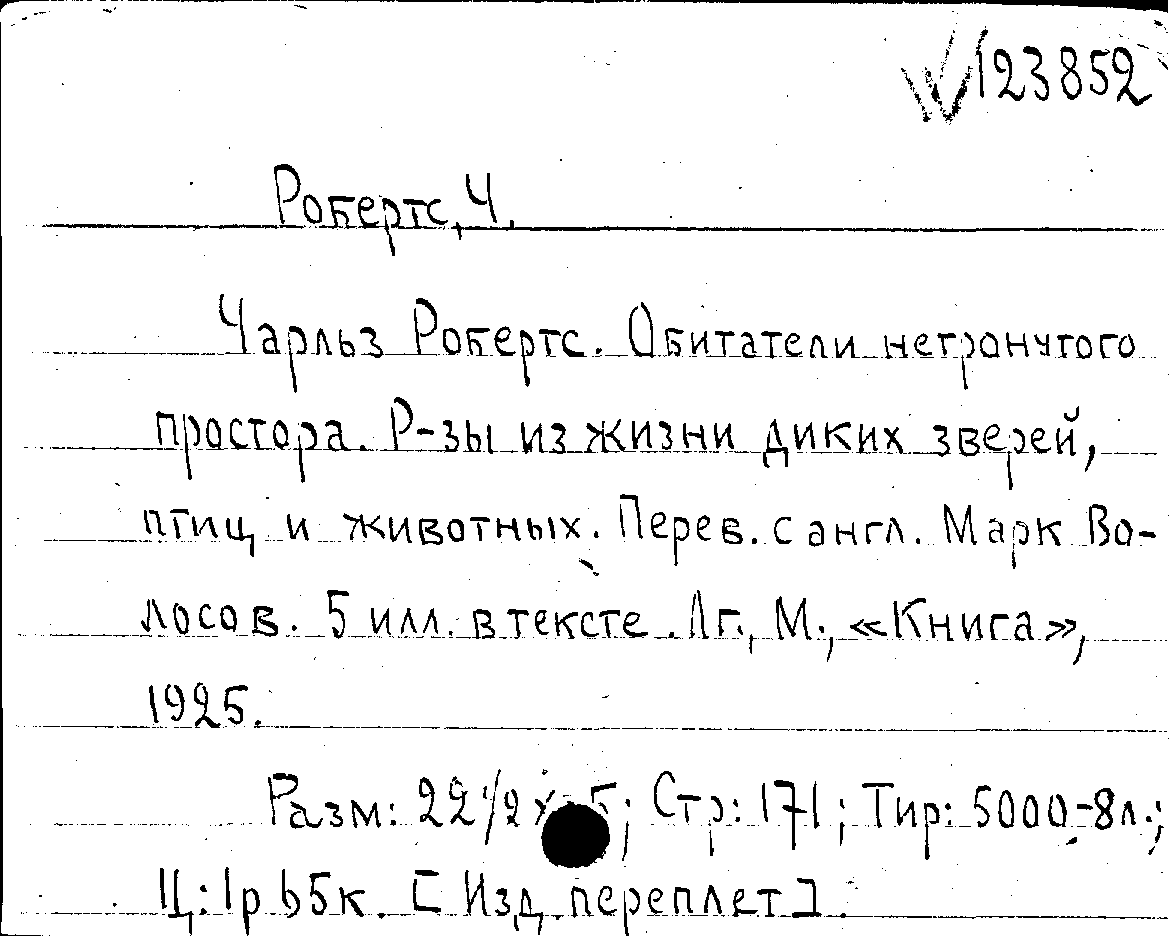 123852
Робертс, Ч.
Чарльз Робертс. Обитатели нетронутого
простора. Р-зы из жизни диких зверей,
птиц и животных. Перев. с англ. Марк Во-
лосов. 5 илл. в тексте. Лг., М., «Книга»,
1925.
Разм: 22 1/2 х 5; Стр: 171; Тир: 5000-8л.;
Ц: 1р 65к. [Изд. переплет].